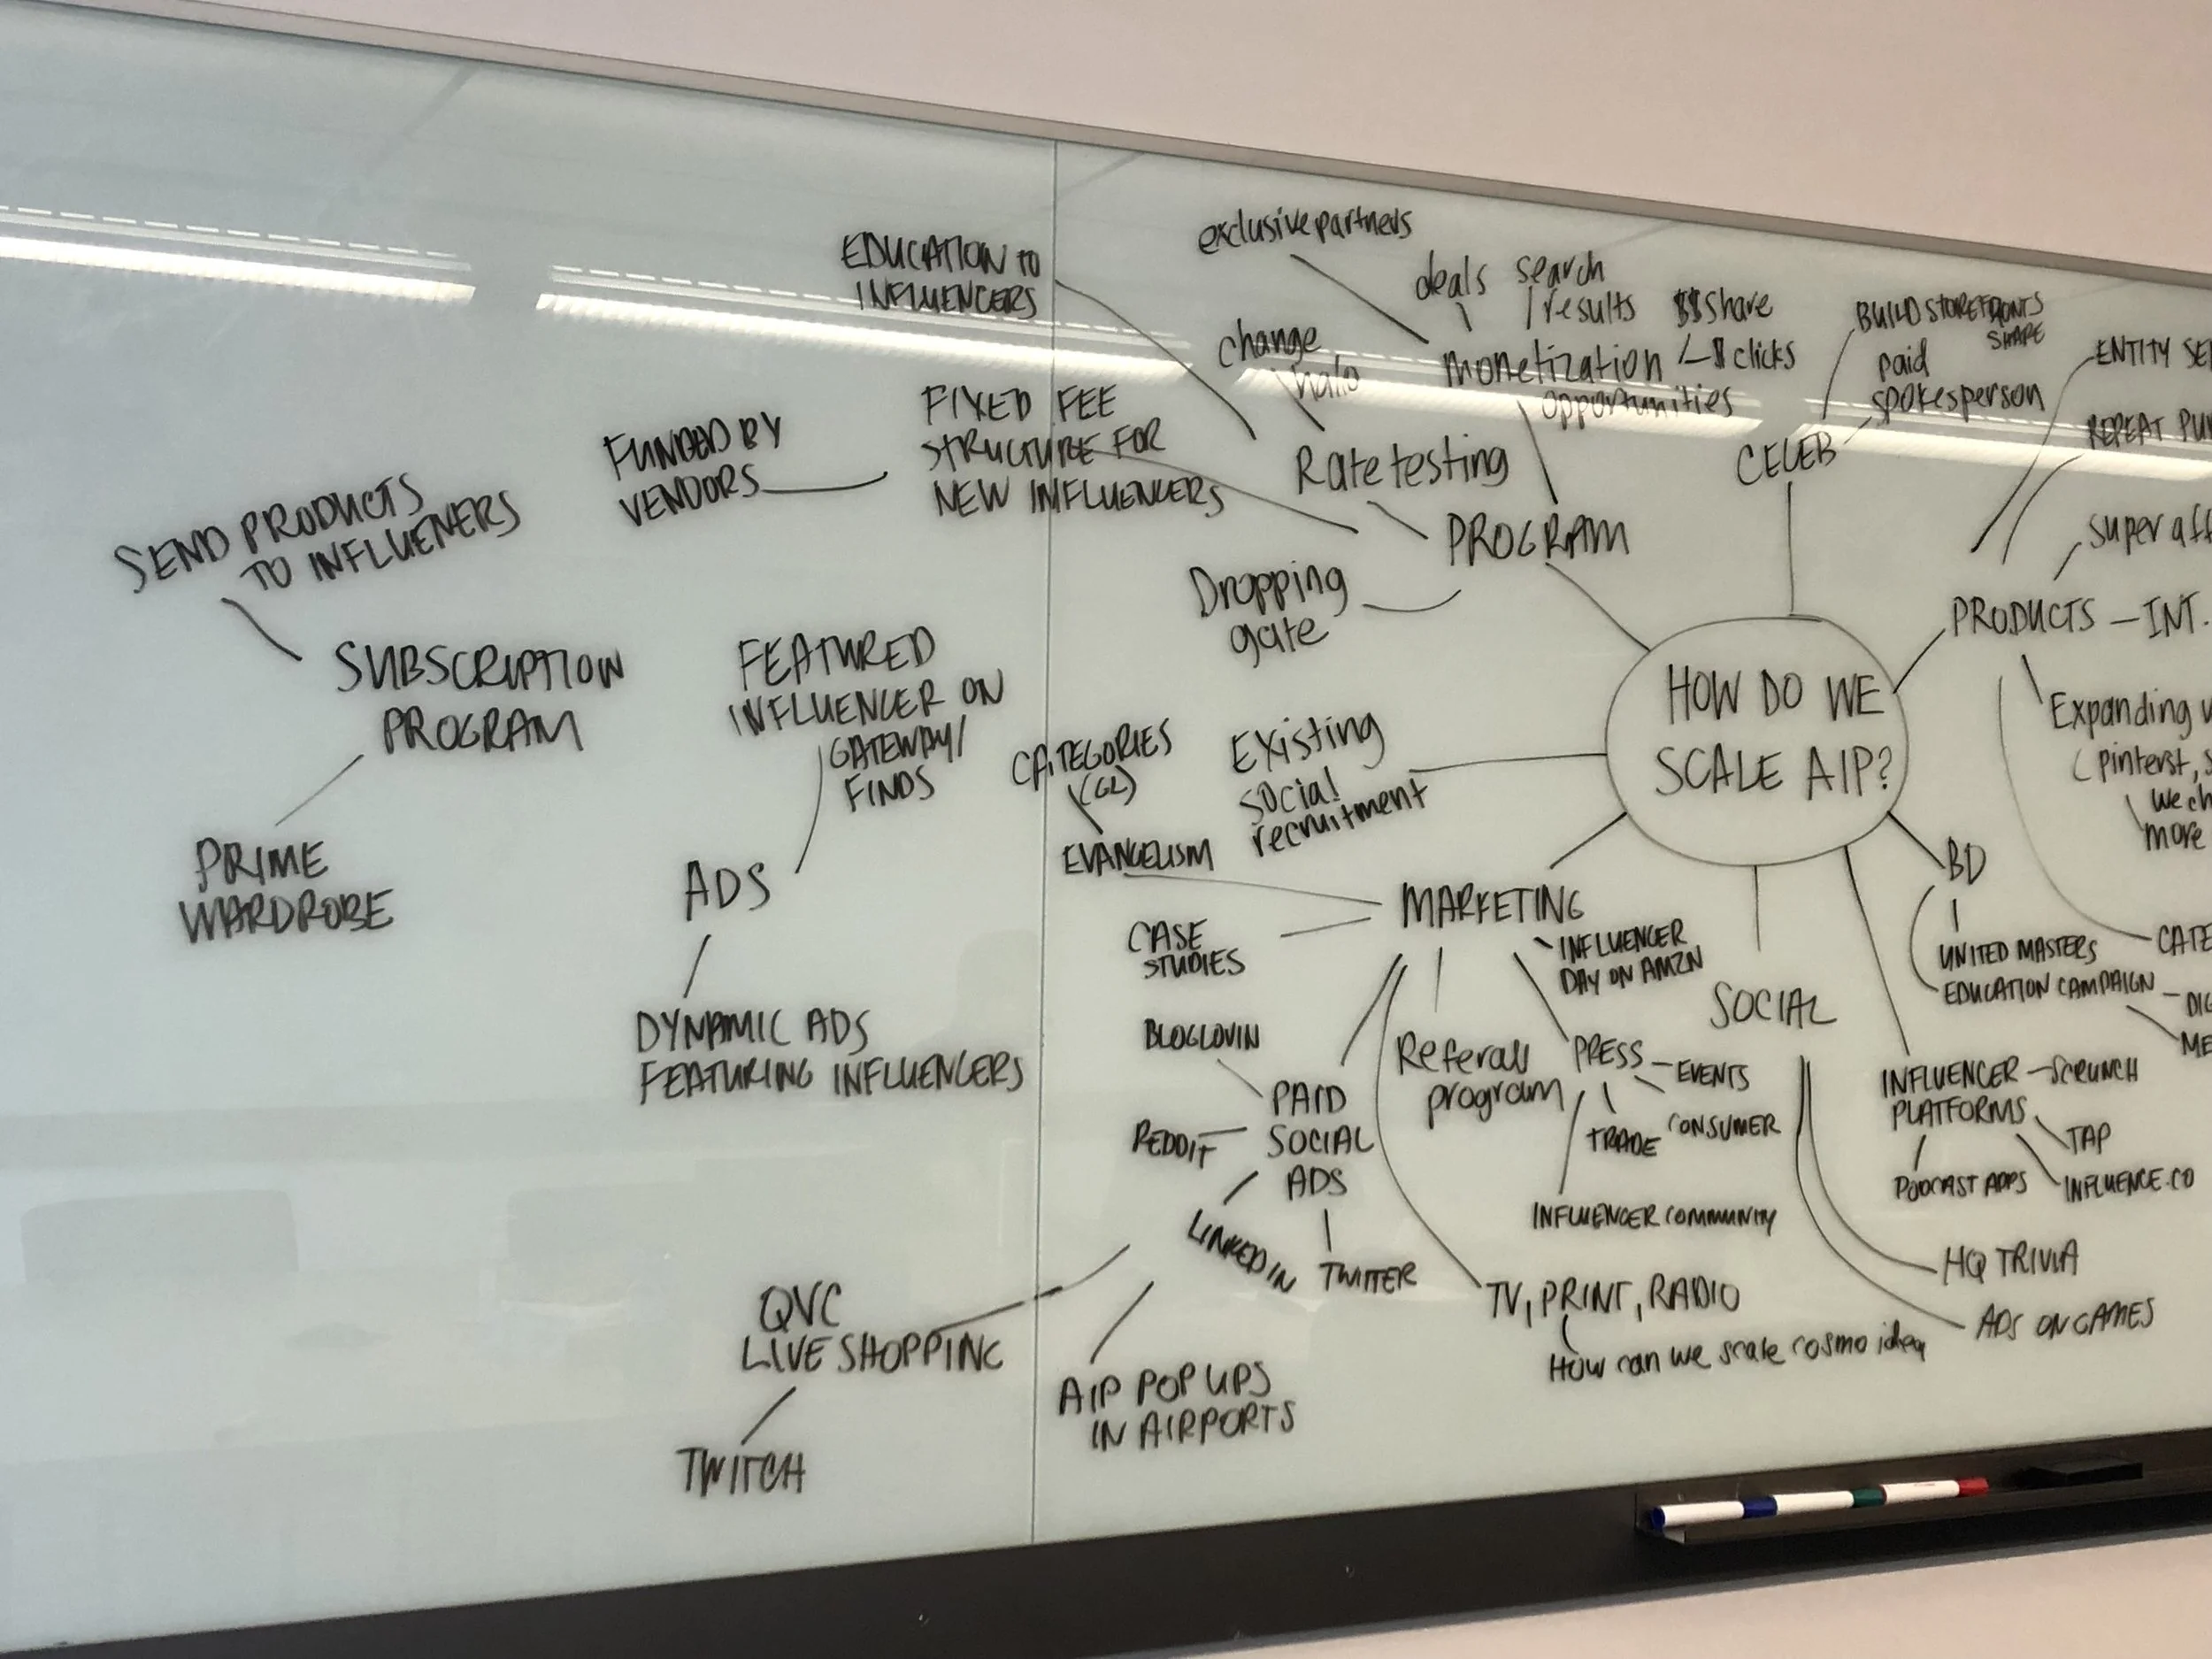 EDUCATION to
INFLUENCERS
exclusive partners
deals
search
results
$$ share
$ clicks
change
halo
monetization
opportunities
BUILD STOREFRONTS
SHARE
paid
spokesperson
CELEB
ENTITY SE
REPEAT PU
super aff
FUNDED BY
VENDORS
FIXED FEE
STRUCTURE FOR
NEW INFLUENCERS
Rate testing
PROGRAM
SEND PRODUCTS
TO INFLUENERS
Dropping
gate
PRODUCTS - INT.
SUBSCRIPTION
PROGRAM
FEATURED
INFLUENCER ON
GATEWAY/
FINDS
CATEGORIES
(GL)
Existing
social
recruitment
HOW DO WE
SCALE AIP?
Expanding
(pinterst,
We ch
more
PRIME
WARDROBE
ADS
EVANGELISM
MARKETING
BD
CASE
STUDIES
INFLUENCER
DAY ON AMZN
UNITED MASTERS
EDUCATION CAMPAIGN
CATE
DIG
ME
DYNAMIC ADS
FEATURING INFLUENCERS
BLOGLOVIN
SOCIAL
PAID
SOCIAL
ADS
REDDIT
LINKED IN
TWITTER
Referall
program
PRESS - EVENTS
TRADE
CONSUMER
INFLUENCER COMMUNITY
INFLUENCER - SCRUNCH
PLATFORMS
TAP
PODCAST APPS
INFLUENCE.CO
QVC
LIVE SHOPPING
TWITCH
AIP POP UPS
IN AIRPORTS
TV, PRINT, RADIO
How can we scale cosmo idea
HQ TRIVIA
ADS ON GAMES